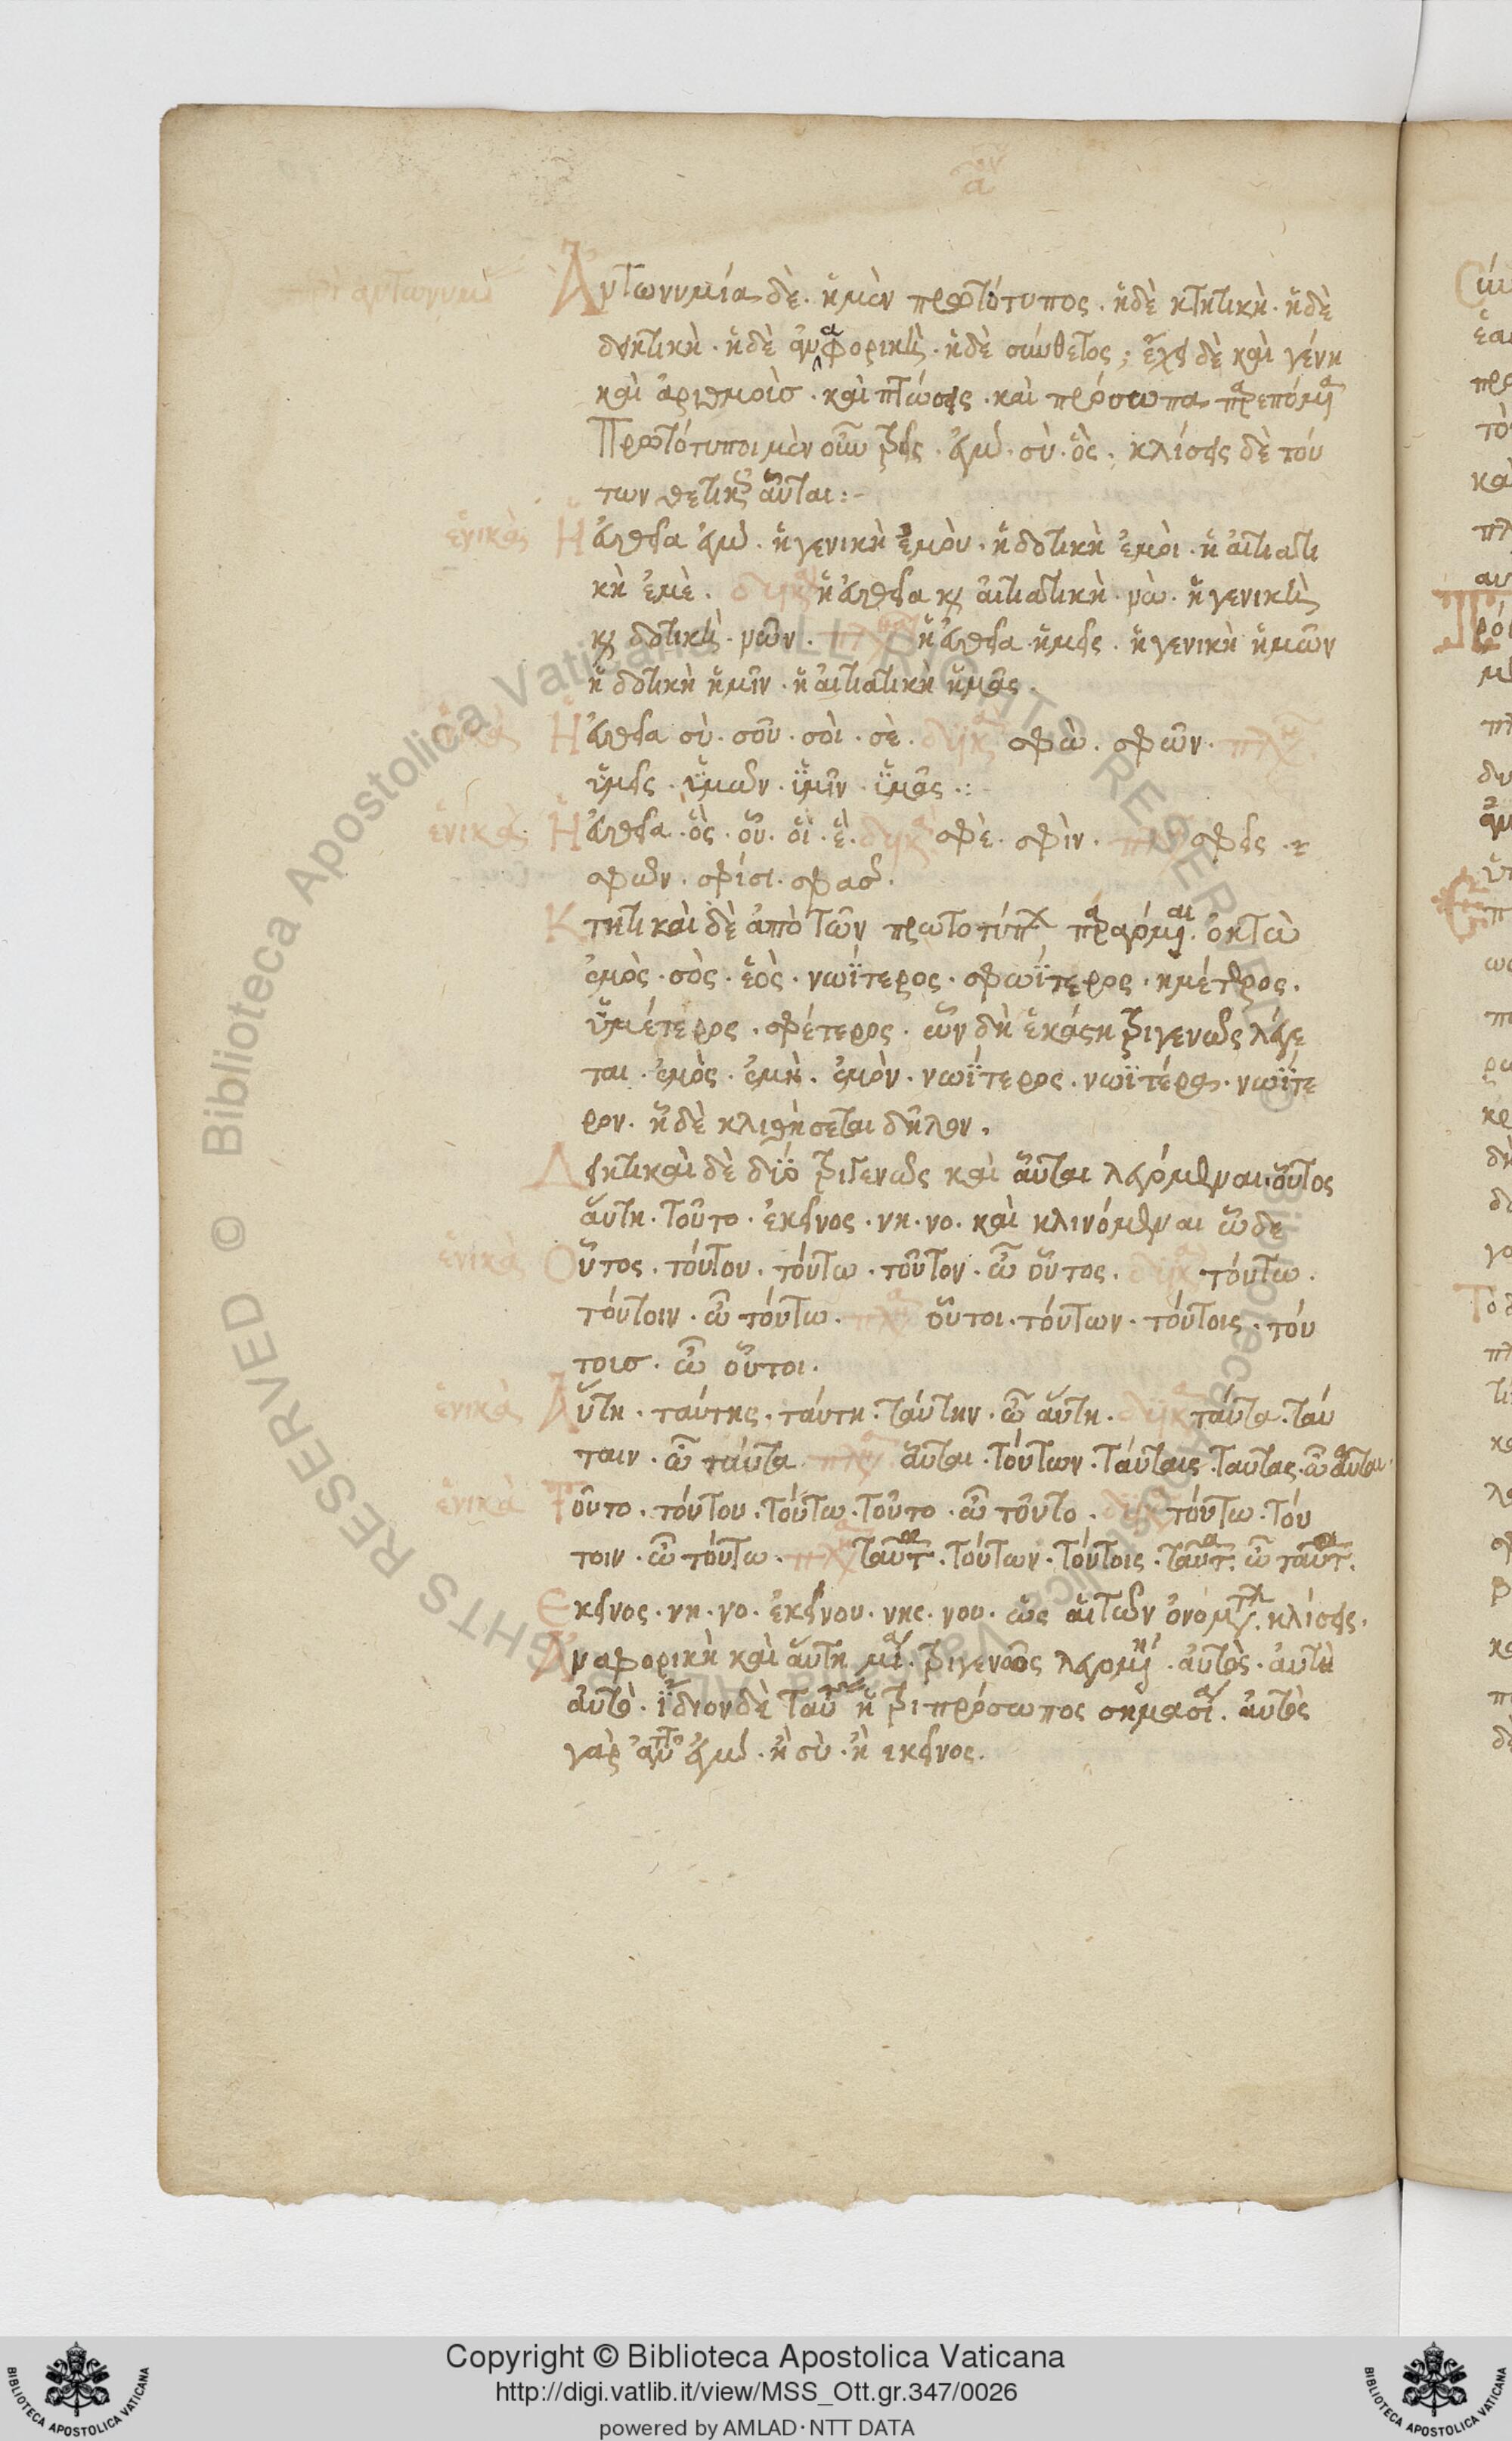 Ἀντωνυμία δὲ· ἡ μὲν πρωτότυπος· ἡ δὲ κτητικὴ· ἡ δὲ
δεικτικὴ· ἡ δὲ ἀναφορικὴ· ἡ δὲ σύνθετος; ἔχει δὲ καὶ γένη
καὶ ἀριθμοὺσ· καὶ πτώσεις· καὶ πρόσωπα παρεπόμενα
Πρωτότυποι μὲν οὖν τρεῖς· ἐγὼ· σὺ· ὃς· κλίσεις δὲ τού
των αὗται:-
ἑνικὰ Ἡ εὐθεῖα ἐγὼ· ἡ γενικὴ ἐμοὺ· ἡ δοτικὴ ἐμοὶ· ἡ αἰτιατι
κὴ ἐμὲ. δυϊκὰ ἡ εὐθεῖα καὶ αἰτιατικὴ· νὼ· ἡ γενικὴ
καὶ δοτικὴ· νῶν. ἡ εὐθεῖα ἡμεῖς· ἡ γενικὴ ἡμῶν
ἡ δοτικὴ ἡμῖν· ἡ αἰτιατικὴ ἡμᾶς.
Ἡ εὐθεῖα σὺ· σοῦ· σοὶ· σὲ. δυϊκὰ σφὼ· σφῶν.
ὑμεῖς· ὑμῶν· ὑμῖν· ὑμᾶς·:
ἑνικὰ Ἡ εὐθεῖα· ὃς· οὗ· οἷ· ἓ. δυϊκὰ σφὲ· σφὶν. σφεῖς·
σφῶν· σφίσι· σφασ·
Κτητικαὶ δὲ ἀπὸ τῶν πρωτοτύπων παραγόμεναι· ὀκτὼ
ἐμὸς· σὸς· ἑὸς· νωΐτερος· σφωΐτερος· ημέτερος.
ὑμέτερος· σφέτερος· ὧν δὴ ἑκάστη τριγενῶς λέγε
ται· ἐμὸς· ἐμὴ· ἐμὸν· νωΐτερος· νωϊτέρα· νωΐτε
ρον· ἡ δὲ κλιθήσεται δῆλον.
Δεικτικαὶ δὲ δύο τριγενῶς καὶ αὗται λεγόμεναι· οὗτος
αὕτη· τοῦτο· ἐκεῖνος· νη· νο· καὶ κλινόμεναι ὧδε
ἑνικὰ Οὗτος· τούτου· τούτω· τοῦτον· ὦ οὗτος. δυϊκὰ τούτω.
τούτοιν· ὦ τούτω. οὗτοι· τούτων· τούτοις· τού
τοισ· ὦ οὗτοι.
ἑνικὰ Αὕτη· ταύτης· ταύτη· ταύτην· ὦ αὕτη. δυϊκὰ ταύτα· ταύ
ταιν· ὦ ταύτα. αὗται· τούτων· ταύταις· ταυτας· ὦ αὗται
ἑνικὰ Τοῦτο· τούτου· τούτω· τοῦτο· ὦ τοῦτο. δυϊκὰ τούτω· τού
τοιν· ὦ τούτω. ταῦτα· τούτων· τούτοις· ταῦτα· ὦ ταῦτα.
Εκεῖνος· νη· νο· ἐκείνου· νης· νου· ὡς αἱ τῶν ὀνομάτων κλίσεις.
Ἀναφορικὴ καὶ αὕτη μία· τριγενῶς λεγομένη· αὐτὸς· αὐτὴ
αὐτὸ· ἴδιον δὲ ταύτης ἡ τριπρόσωπος σημασία. αὐτὸς
γὰρ ἐγὼ· ἢ σὺ· ἢ εκεῖνος.
Copyright © Biblioteca Apostolica Vaticana
http://digi.vatlib.it/view/MSS_Ott.gr.347/0026
powered by AMLAD·NTT DATA